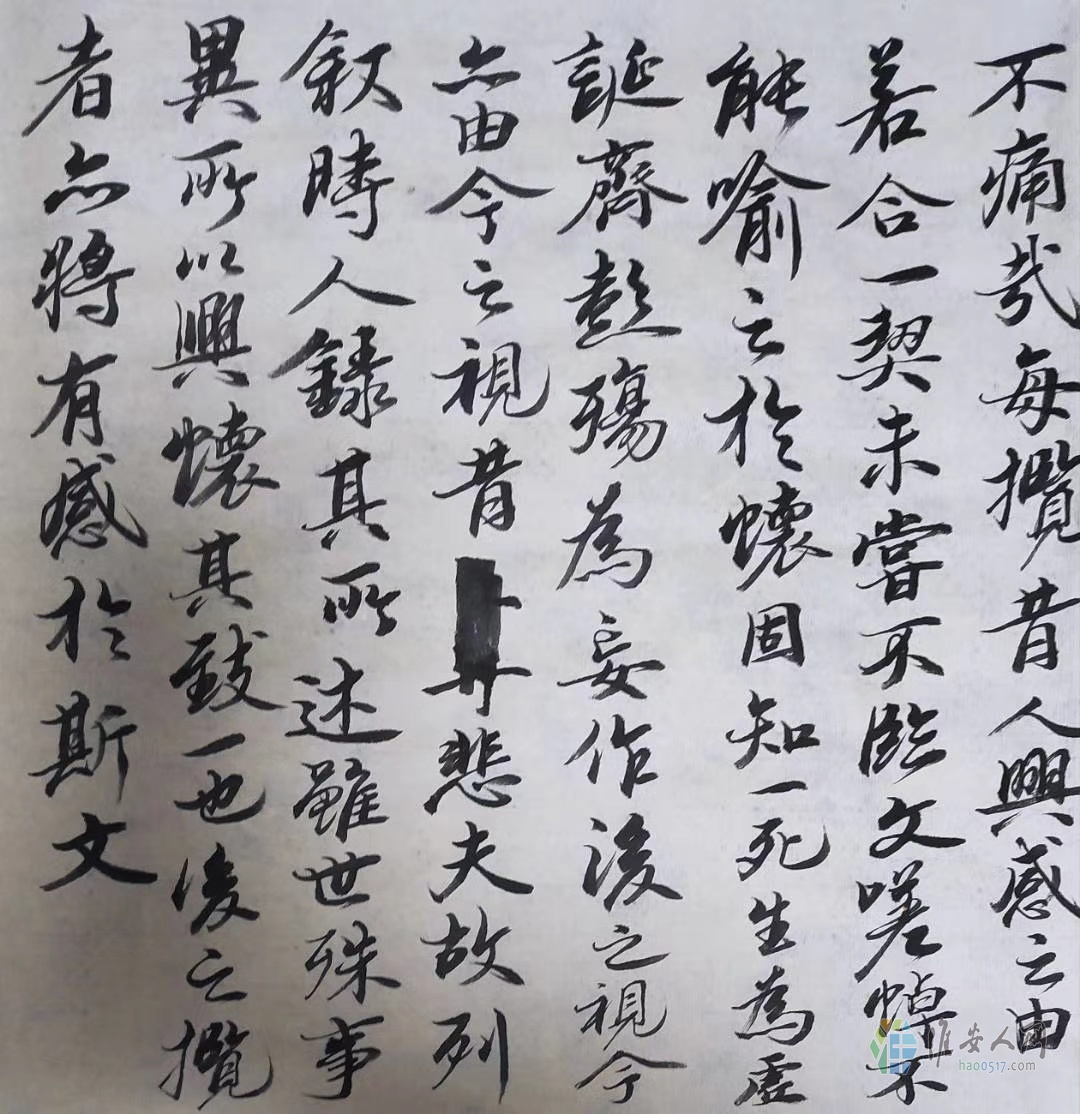 不痛哉每攬昔人興感之由
若合一契未嘗不臨文嗟悼不
能喻之於懷固知一死生為虛
誕齊彭殤為妄作後之視今
亦由今之視昔悲夫故列
叙時人錄其所述雖世殊事
異所以興懷其致一也後之攬
者亦將有感於斯文
淮安人网
hao0517.com